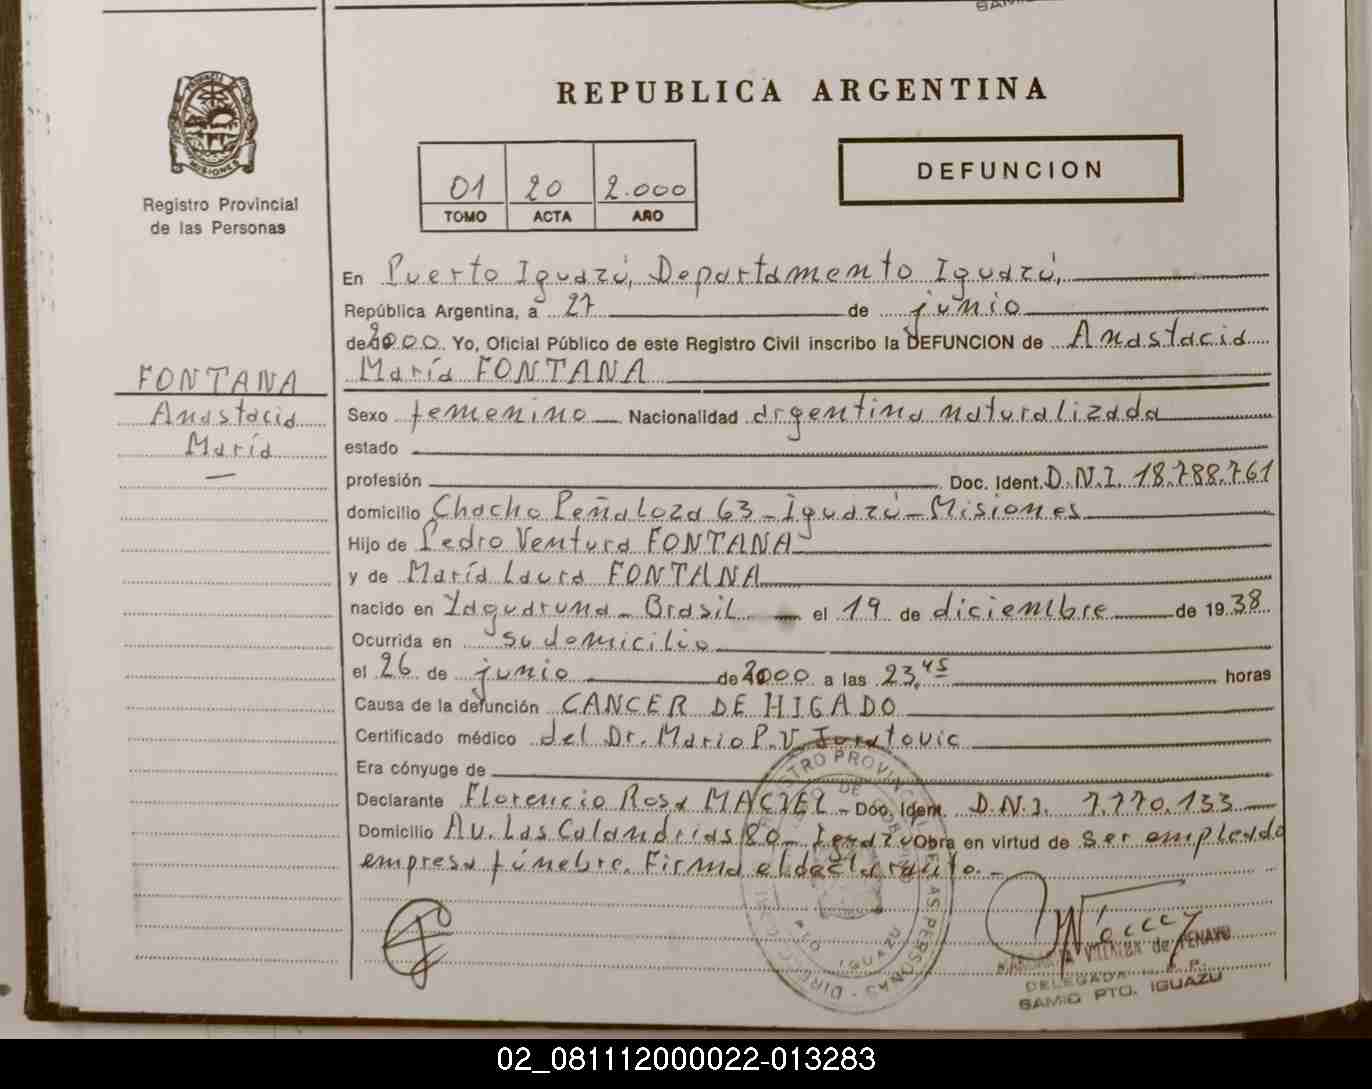 REPUBLICA ARGENTINA
MISIONES
Registro Provincial
de las Personas
01 20 2.000
TOMO ACTA AÑO
DEFUNCION
En Puerto Iguazú, Departamento Iguazú,
República Argentina, a 27 de junio
de 2000. Yo, Oficial Público de este Registro Civil inscribo la DEFUNCION de Anastacia
María FONTANA
FONTANA
Anastacia
María
Sexo femenino Nacionalidad argentina naturalizada
estado
profesión Doc. Ident. D.N.I. 18.788.761
domicilio Chacho Peñaloza 63 - Iguazú - Misiones
Hijo de Pedro Ventura FONTANA
y de María Laura FONTANA
nacido en Yaguaruna - Brasil - el 19 de diciembre de 19 38
Ocurrida en su domicilio
el 26 de junio de 2000 a las 23,45 horas
Causa de la defunción CANCER DE HIGADO
Certificado médico del Dr. Mario P.V. Juratovic
Era cónyuge de
Declarante Florencio Rosa MACIEL - Doc. Ident. D.N.I. 7.770.133
Domicilio Av. Las Calandrias 80 - Iguazú Obra en virtud de ser empleado
empresa fúnebre. Firma el declarante. -
VILLALBA de PENAYO
DELEGADA
SAMIC PTO. IGUAZU
02_081112000022-013283